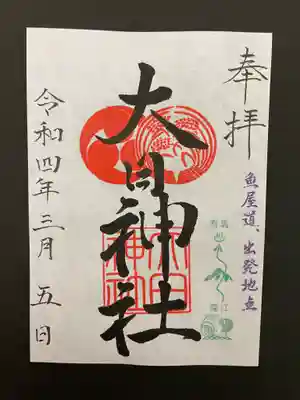 奉拝
魚屋道、出発地点
大日神社
令和四年三月五日